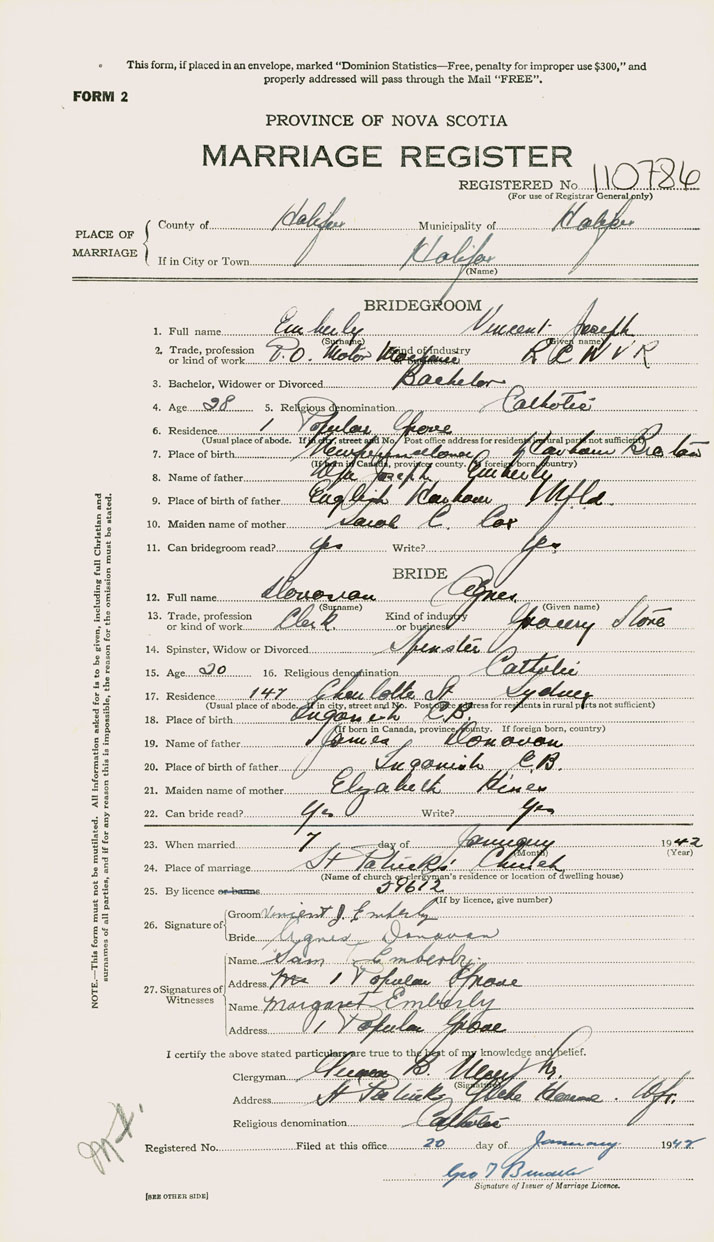 This form, if placed in an envelope, marked "Dominion Statistics—Free, penalty for improper use $300," and
properly addressed will pass through the Mail "FREE".
FORM 2
PROVINCE OF NOVA SCOTIA
MARRIAGE REGISTER
REGISTERED No. 110786
(For use of Registrar General only)
PLACE OF MARRIAGE
County of Halifax Municipality of Halifax
If in City or Town Halifax
(Name)
BRIDEGROOM
1. Full name Emberly Vincent Joseph
(Surname) (Given name)
2. Trade, profession or kind of work P.O. Motor Kind of industry or business R C N V R
3. Bachelor, Widower or Divorced Bachelor
4. Age 28 5. Religious denomination Catholic
6. Residence 1 Popular Grove
(Usual place of abode. If in city, street and No. Post office address for residents in rural parts not sufficient)
7. Place of birth
(If born in Canada, province, county. If foreign born, country)
8. Name of father Wm Joseph Emberly
9. Place of birth of father English Harbour Nfld.
10. Maiden name of mother Sarah C. Cox
11. Can bridegroom read? Yes Write? Yes
BRIDE
12. Full name Donovan Agnes
(Surname) (Given name)
13. Trade, profession or kind of work Clerk Kind of industry or business Grocery Store
14. Spinster, Widow or Divorced Spinster
15. Age 20 16. Religious denomination Catholic
17. Residence 147 Charlotte St Sydney
(Usual place of abode. If in city, street and No. Post office address for residents in rural parts not sufficient)
18. Place of birth Ingonish C.B.
(If born in Canada, province, county. If foreign born, country)
19. Name of father James Donovan
20. Place of birth of father Ingonish C.B.
21. Maiden name of mother Elizabeth Hines
22. Can bride read? Yes Write? Yes
23. When married 7 day of January 1942
(Month) (Year)
24. Place of marriage St Patrick's Church
(Name of church or clergyman's residence or location of dwelling house)
25. By licence or banns 59612
(If by licence, give number)
26. Signature of
Groom Vincent J. Emberly
Bride Agnes Donovan
27. Signatures of Witnesses
Name Sam Emberly
Address 1 Popular Grove
Name Margaret Emberly
Address 1 Popular Grove
I certify the above stated particulars are true to the best of my knowledge and belief.
Clergyman
(Signature)
Address St Patricks Glebe House Hfx.
Religious denomination Catholic
Registered No. Filed at this office 20 day of January 1942
Geo T
Signature of Issuer of Marriage Licence.
[SEE OTHER SIDE]
NOTE.—This form must not be mutilated. All information asked for is to be given, including full Christian and
surnames of all parties, and if for any reason this is impossible, the reason for the omission must be stated.